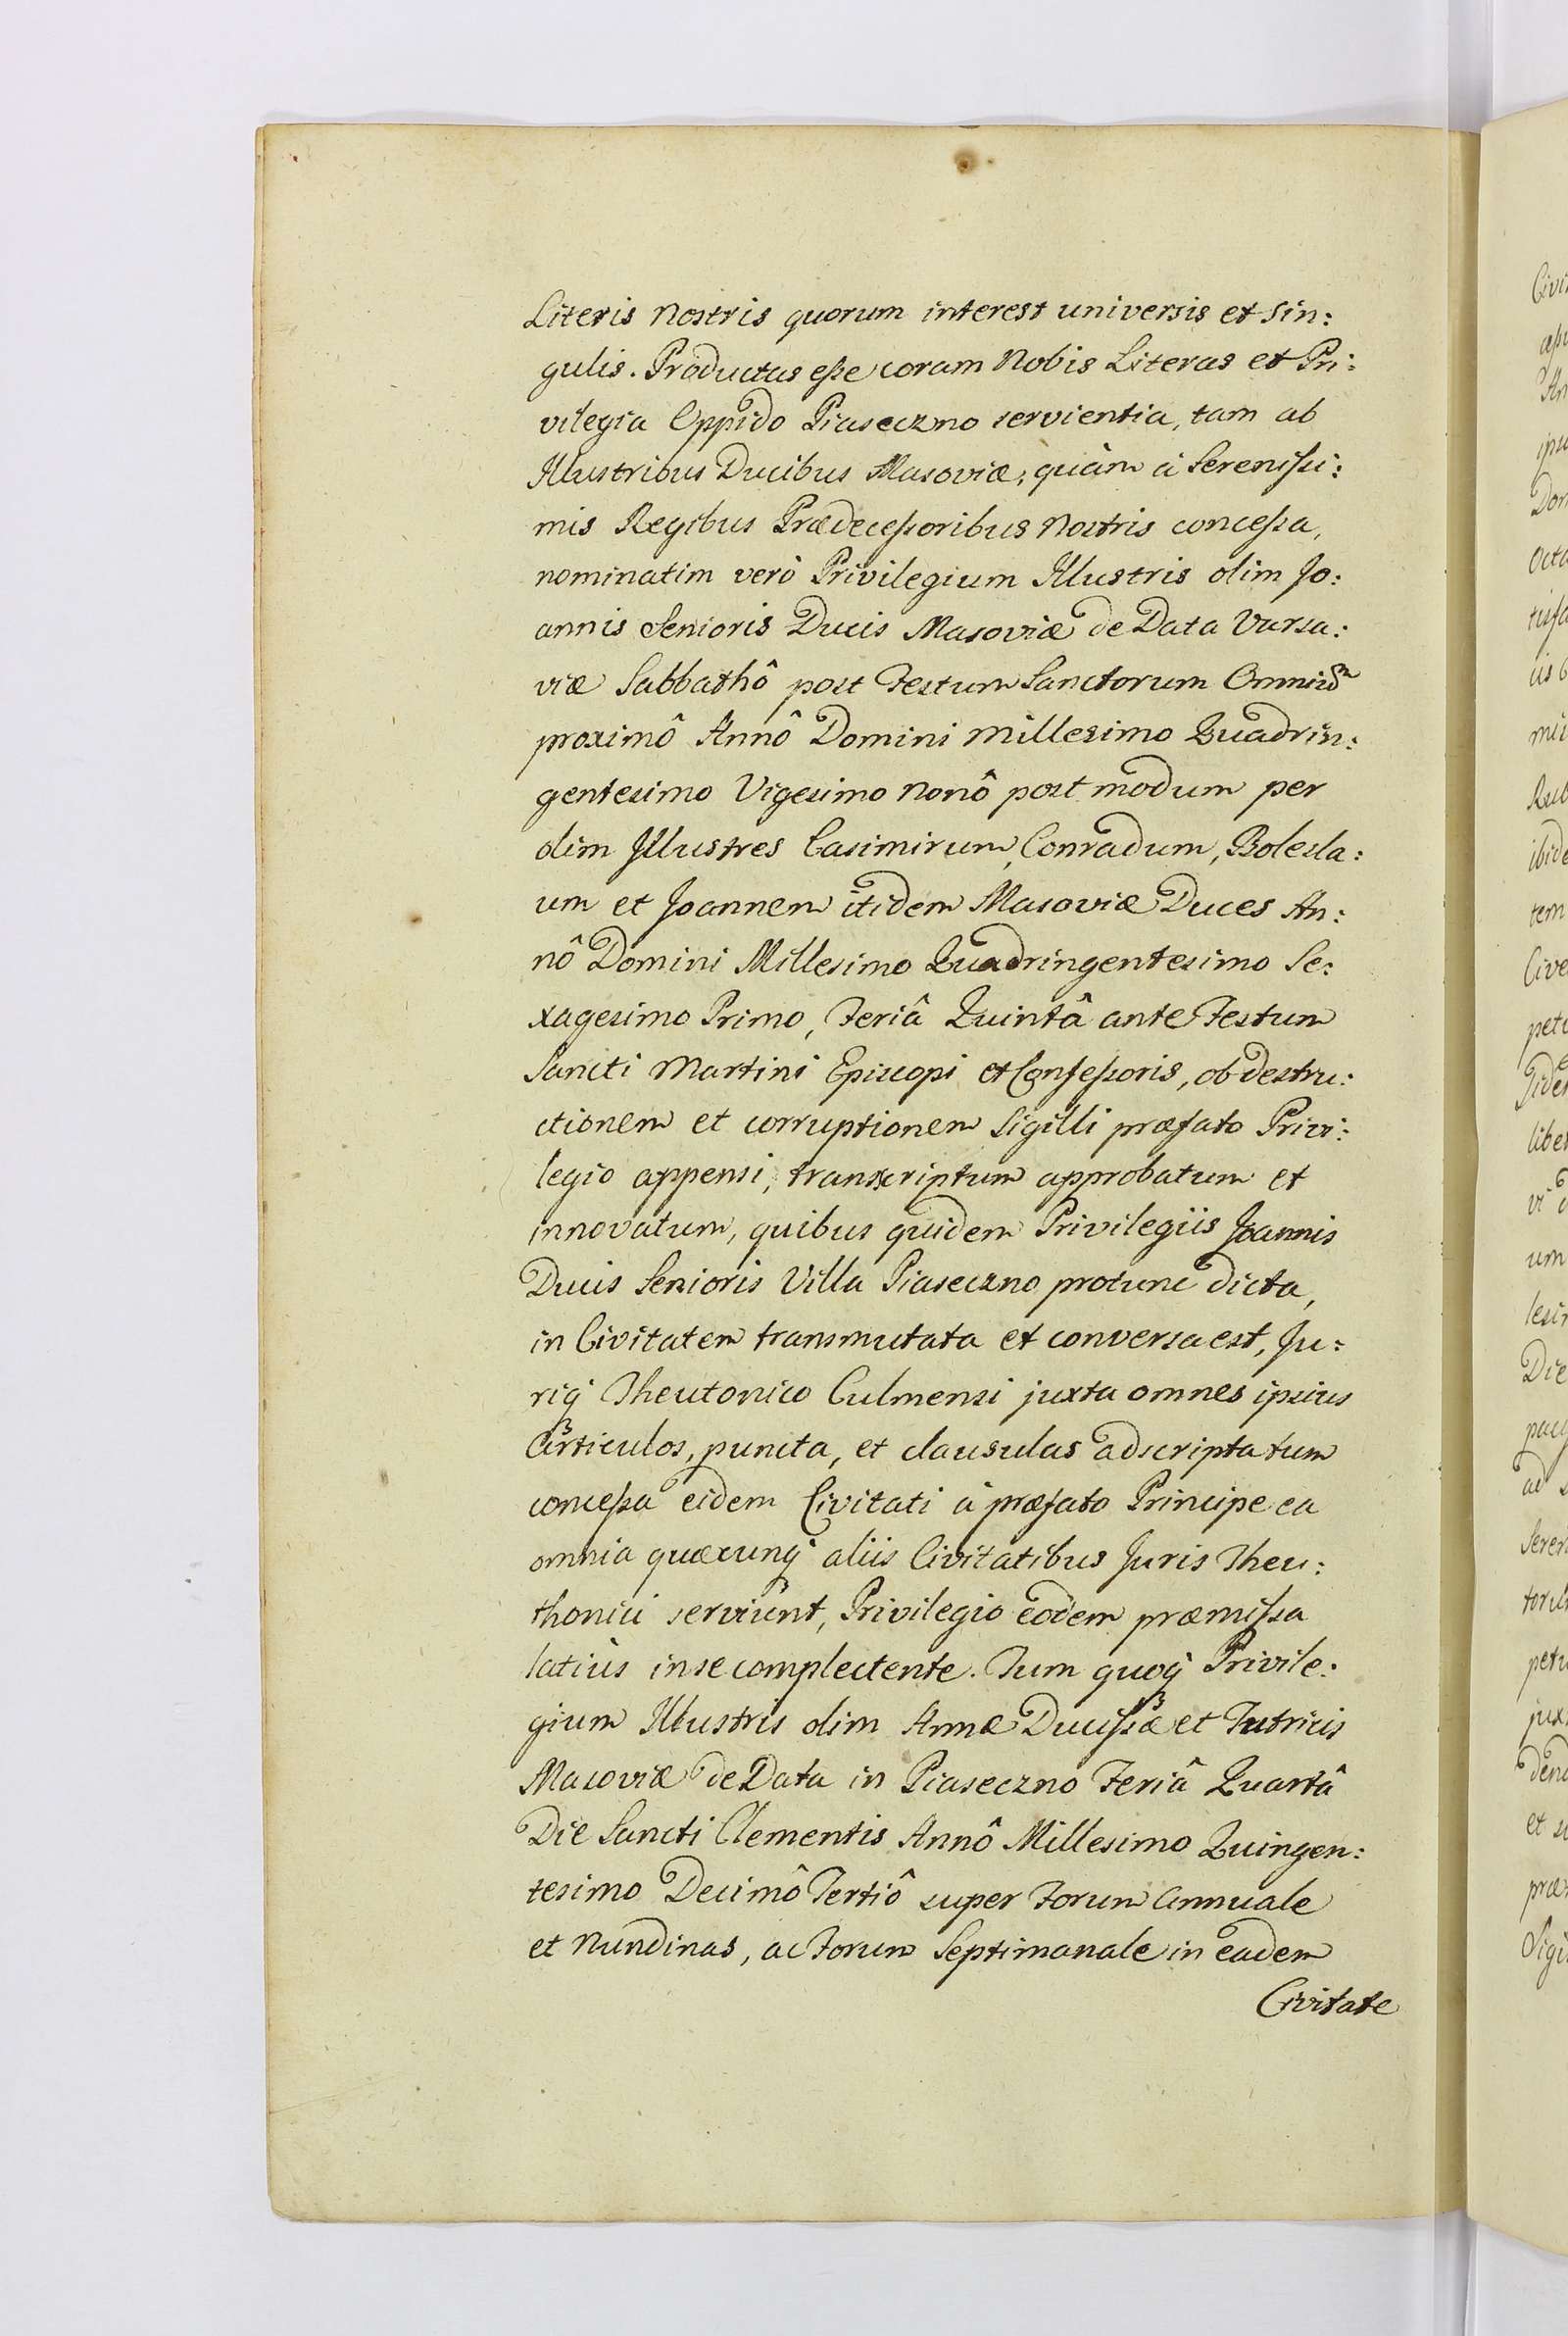 Literis Nostris quorum interest universis et sin:
gulis. Productas eſse coram Nobis Literas et Pri:
vilegia Oppido Piaseczno servientia, tam ab
Illustribus Ducibus Masoviæ, quàm à Serenißi:
mis Regibus Prædeceßoribus Nostris conceßa,
nominatim verò Privilegium Illustris olim Jo:
annis Senioris Ducis Masoviæ de Data Varsa:
viæ Sabbathô post Festum Sanctorum Omniũ
proximô Annô Domini Millesimo Quadrin:
gentesimo Vigesimo Nonô post modum per
olim Illustres Casimirum, Conradum, Bolesla:
um et Joannem itidem Masoviæ Duces An:
nô Domini Millesimo Quadringentesimo Se:
xagesimo Primo, Feriâ Quintâ ante Festum
Sancti Martini Episcopi et Confeßoris, ob destru:
ctionem et corruptionem Sigilli præfato Privi:
legio appensi, transcriptum approbatum et
innovatum, quibus quidem Privilegiis Joannis
Ducis Senioris Villa Piaseczno protunc dicta,
in Civitatem transmutata et conversa est, Ju:
riq́ Theutonico Culmensi juxta omnes ipsius
Articulos, puncta, et clausulas adscripta tum
conceßa eidem Civitati à præfato Principe ea
omnia quæcunq́ aliis Civitatibus Juris Theu:
thonici serviunt, Privilegio eodem præmißa
latiùs in se complectente. Tum quoq́ Privile:
gium Illustris olim Annæ Ducißæ et Tutricis
Masoviæ de Data in Piaseczno Feriâ Quartâ
Die Sancti Clementis Annô Millesimo Quingen:
tesimo Decimô Tertiô super Forum Annuale
et Nundinas, ac Forum Septimanale in eadem
Civitate